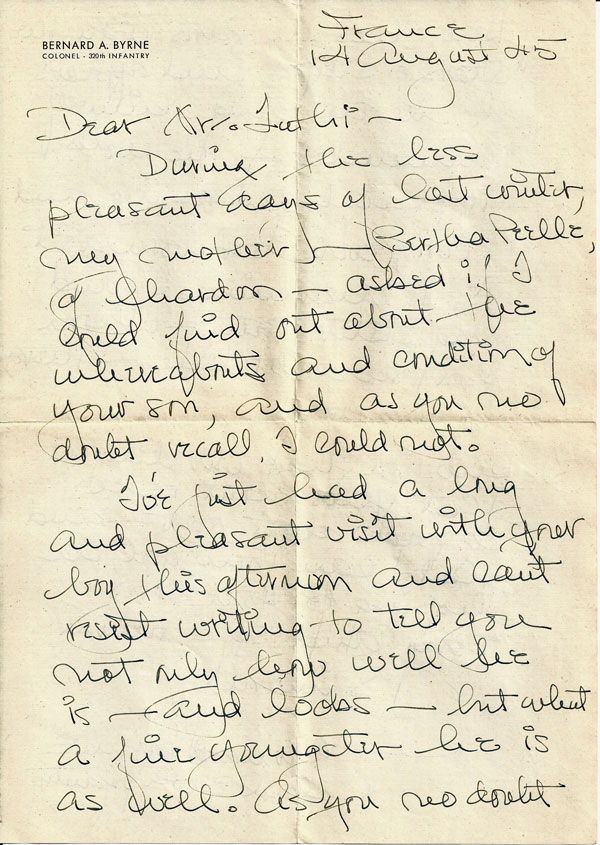 BERNARD A. BYRNE
COLONEL - 320th INFANTRY
France
14 August 45
Dear Mr. Luthi –
During the less
pleasant days of last winter,
my mother – Bertha Peelle,
of Chardon – asked if I
could find out about the
whereabouts and condition of
your son, and as you no
doubt recall, I could not.
I've just had a long
and pleasant visit with your
boy this afternoon and can't
resist writing to tell you
not only how well he
is – and looks – but what
a fine youngster he is
as well. As you no doubt